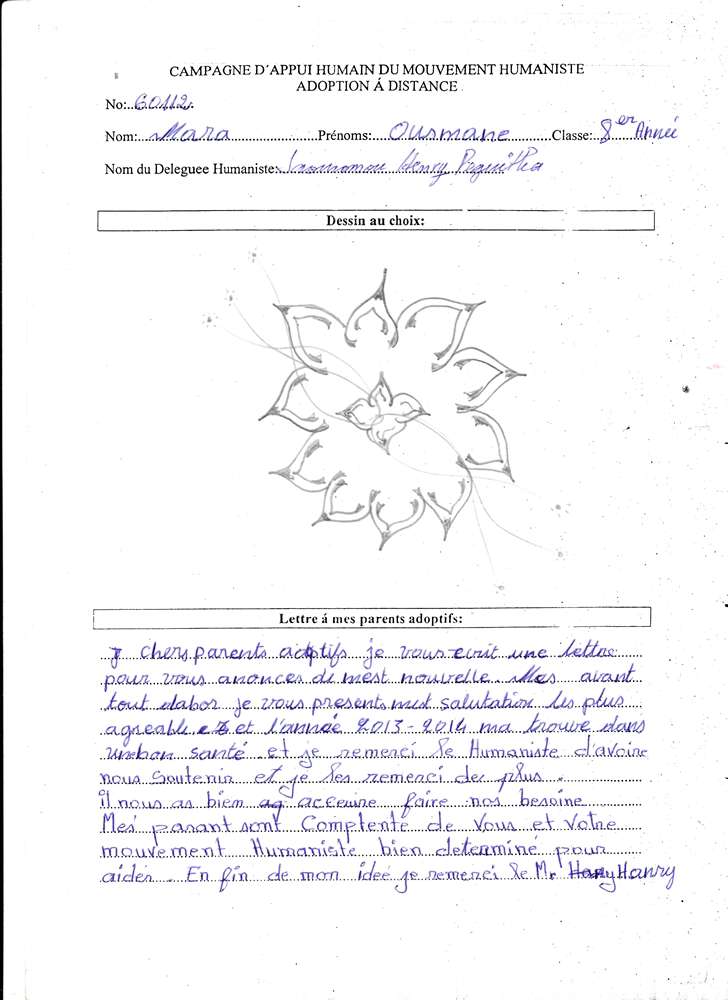 CAMPAGNE D'APPUI HUMAIN DU MOUVEMENT HUMANISTE
ADOPTION Á DISTANCE
No: 60112
Nom: Mara Prénoms: Ousmane Classe: 8er Année
Nom du Deleguee Humaniste: Henry
Dessin au choix:
Lettre á mes parents adoptifs:
chers parents adoptifs je vous ecrit une lettre
pour vous anonces de mest nouvelle. Mes avant
tout dabor je vous presents mest salutation les plus
agreable et l'année 2013-2014 ma trouve dans
un bon santé et je remerci le Humaniste d'avoire
nous soutenir et je les remerci de plus.
il nous as bien acceuire faire nos besoine
Mes parant sont Comptente de Vous et Votre
mouvement Humaniste bien determiné pour
aider. En fin de mon ideé je remerci le Mr Hanry